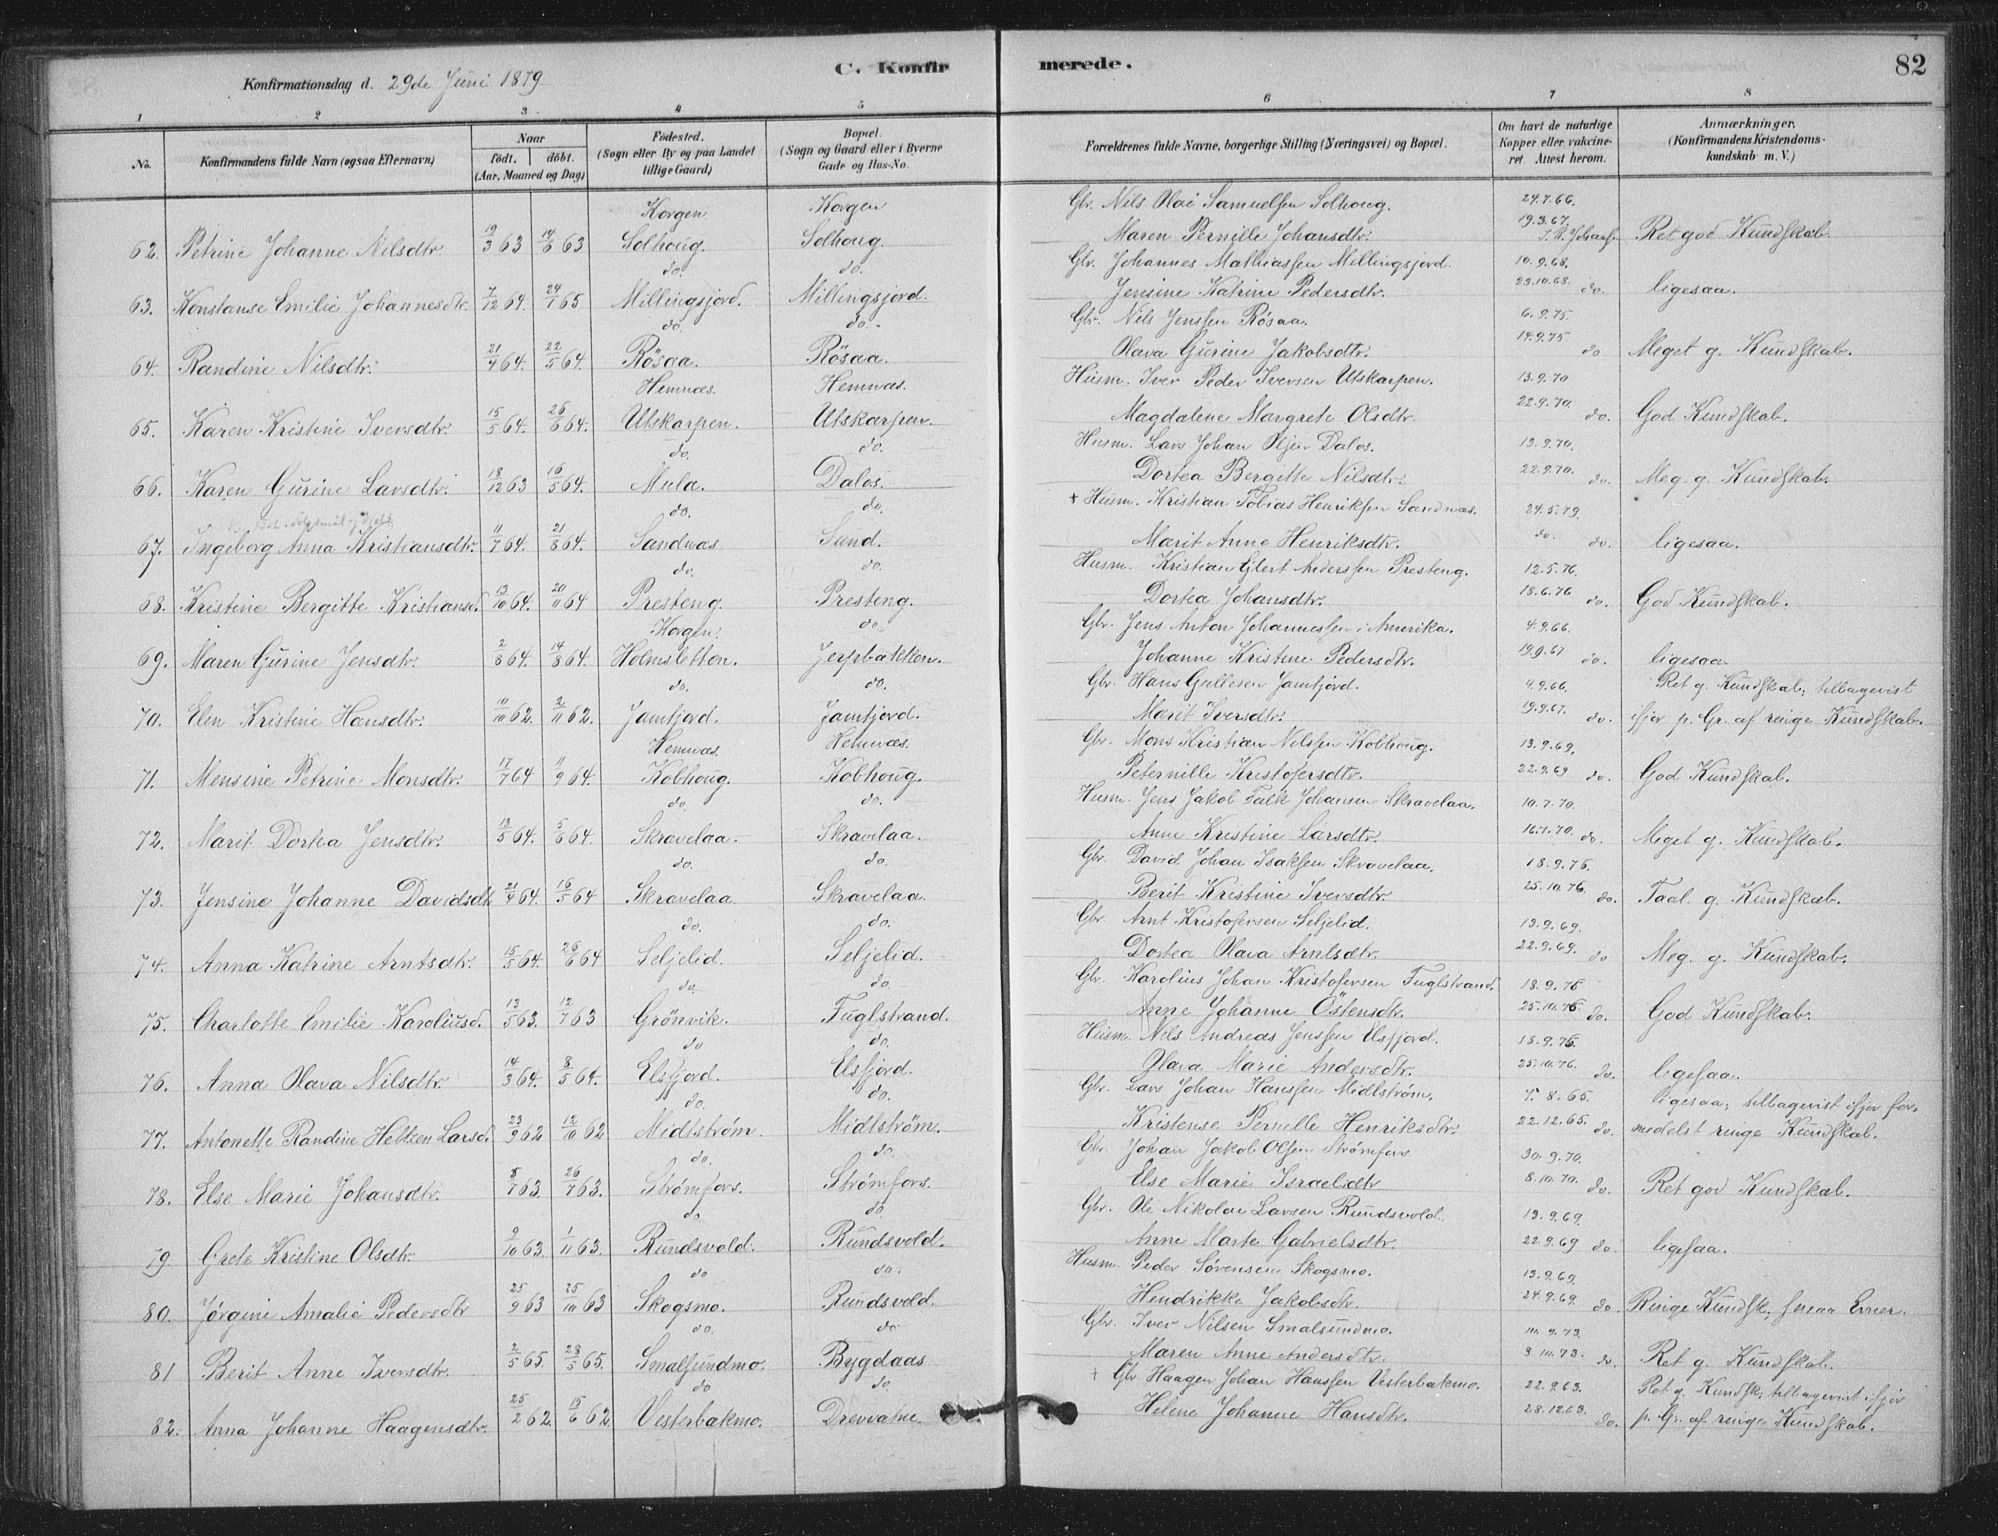 82
Konfirmationsdag d. 29de Juni 1879.
C. Konfirmerede.
1 2 3 4 5 6 7 8
No. Konfirmandens fulde Navn (ogsaa Efternavn) Naar födt. döbt. (Aar, Maaned og Dag) Födested. (Sogn eller By og paa Landet tillige Gaard) Bopæl. (Sogn og Gaard eller i Byerne Gade og Hus-No. Forældrenes fulde Navne, borgerlige Stilling (Næringsvei) og Bopæl. Om havt de naturlige Kopper eller vakcineret. Attest herom. Anmærkninger. (Konfirmandens Kristendomskundskab m. V.)
Korgen Korgen Gbr. Nils Olai Samuelsen Solhoug. 24.7.66.
62. Petrine Johanne Nilsdtr. 13/3 63 14/6 63 Solhoug. Solhoug. Maren Pernille Johansdtr. 19.3.67. Ret god Kundskab.
do. do. Gbr. Johannes Mathiassen Millingsjord. 10.9.68.
63. Konstanse Emilie Johannesdtr. 7/12 64. 24/1 65 Millingsjord. Millingsjord. Jensine Katrine Pedersdtr. 23.10.68. do. ligesaa.
do. do. Gbr. Nils Jenssen Rösaa. 6.9.75
64. Randine Nilsdtr. 21/4 64. 22/5 64. Rösaa. Rösaa. Olava Gurine Jakobsdtr. 14.9.75 do Meget g. Kundskab.
Hemnæs. Hemnæs. Husm. Iver Peder Iversen Utskarpen. 13.9.70
65. Karen Kristine Iversdtr. 15/5 64. 26/6 64. Utskarpen. Utskarpen. Magdalene Margrete Olsdtr. 22.9.70. do. God Kundskab.
do. do. Husm. Lars Johan Olsen Dalos. 13.9.70.
66. Karen Gurine Larsdtr. 18/12 63 16/5 64. Mula. Dalos. Dortea Bergitte Nilsdtr. 22.9.70. do. Meg. g. Kundskab.
do. do. + Husm. Kristian Tobias Henriksen Sandnæs. 24.5.79.
67. Ingeborg Anna Kristiansdtr. 11/7 64. 21/8 64. Sandnæs Sund. Marit Anne Henriksdtr. do. do. ligesaa.
do. do. Husm. Kristian Ejlert Anderssen Presteng. 12.5.76.
68. Kristine Bergitte Kristiansd. 13/10 64. 20/11 64 Presteng. Presteng. Dortea Johansdtr. 18.6.76 do. God Kundskab.
Korgen. do. Gbr. Jens Anton Johannessen i Amerika. 4.9.66.
69. Maren Gurine Jensdtr. 2/8 64. 14/8 64. Holmsletten. Jerpbakken. Johanne Kristine Pedersdtr. 19.9.67 do. ligesaa.
do. do. Gbr. Hans Gullesen Jamtjord. 4.9.66. Ret g. Kundskab, tilbagevist
70. Elen Kristine Hansdtr. 10/10 62. 2/11 62. Jamtjord. Jamtjord. Marit Iversdtr. 19.9.67. do. ifjor p. Gr. af ringe Kundskab.
Hemnæs. Hemnæs. Gbr. Mons Kristian Nilssen Kobhoug. 13.9.69.
71. Mensine Petrine Monsdtr. 17/7 64 11/9 64. Kobhoug. Kobhoug. Peternille Kristofersdtr. 22.9.69 do. God Kundskab.
do. do. Husm. Jens Jakob Falk Johansen Skravelaa. 10.7.70.
72. Marit Dortea Jensdtr. 13/5 64. 5/6 64. Skravelaa. Skravelaa. Anne Kristine Larsdtr. do. Meget g. Kundskab.
do. do. Gbr. David Johan Isaksen Skravelaa. 18.9.76.
73. Jensine Johanne Davidsdt. 21/4 64. 16/5 64 Skravelaa Skravelaa. Berit Kristine Iversdtr. 25.10.76. do. Taal. g. Kundskab.
do. do. Gbr Arnt Kristofersen Seljelid. 13.9.69.
74. Anna Katrine Arntsdtr. 15/5 64. 26/6 64 Seljelid. Seljelid. Dortea Olava Arntsdtr. 22.9.69. do Meg. g. Kundskab.
do. do. Gbr. Karolius Johan Kristofersen Fuglstrand. 18.9.76
75. Charlotte Emilie Karoliusd. 13/5 63. 12/7 63 Grönvik. Fuglstrand. Anne Johanne Östensdtr. 25.10.76. do. God Kundskab.
do do. Husm. Nils Andreas Jenssen Elsfjord. 18.9.76
76. Anna Olava Nilsdtr. 14/3 64. 8/5 64. Elsfjord. Elsfjord. Olava Marie Andersdtr. 25.10.76. do. ligesaa.
do. do. Gbr. Lars Johan Hanssen Midtström. 7.8.65. ligesaa, tilbagevist ifjor for-
77. Antonette Randine Heltzen Larsd. 23/9 62 12/10 62 Midtström. Midtström. Kristense Pernille Henriksdtr. 22.12.65. do. medelst ringe Kundskab.
do. do. Gbr. Johan Jakob Olsen Strömfors. 30.9.70.
78. Else Marie Johansdtr. 8/7 63. 26/7 63. Strömfors. Strömfors. Else Marie Israelsdtr 8.10.70. do. Ret god Kundskab.
do. do Gbr. Ole Nikolai Larsen Rundsvold. 13.9.69.
79 Grete Kristine Olsdtr. 9/10 63. 1/11 63. Rundsvold. Rundsvold. Anne Marte Gabrielsdtr. 22.9.69 do. ligesaa.
do do. Husm. Peder Sörensen Skogsmo. 13.9.69.
80. Jörgine Amalie Pedersdtr 25/9 63 25/10 63 Skogsmo. Rundsvold. Hendrikke Jakobsdtr. 24.9.69. do. Ringe Kundsk., smaa Evner.
do. do Gbr. Iver Nilsen Smalsundmo.
81 Berit Anne Iversdtr. 2/5 65. 28/5 65. Smalsundmo. Bygdaas Maren Anne Andersdtr. do. Ret g. Kundskab.
do do. + Gbr Haagen Johan Hanssen Vesterbakmo. 22.9.63. Ret g. Kundsk, tilbagevist ifjor
82. Anna Johanne Haagensdtr. 25/2 62. 15/6 62 Vesterbakmo. Drevvatne. Helene Johanne Hansdtr. 28.12.63. do. p. Gr. af ringe Kundskab.